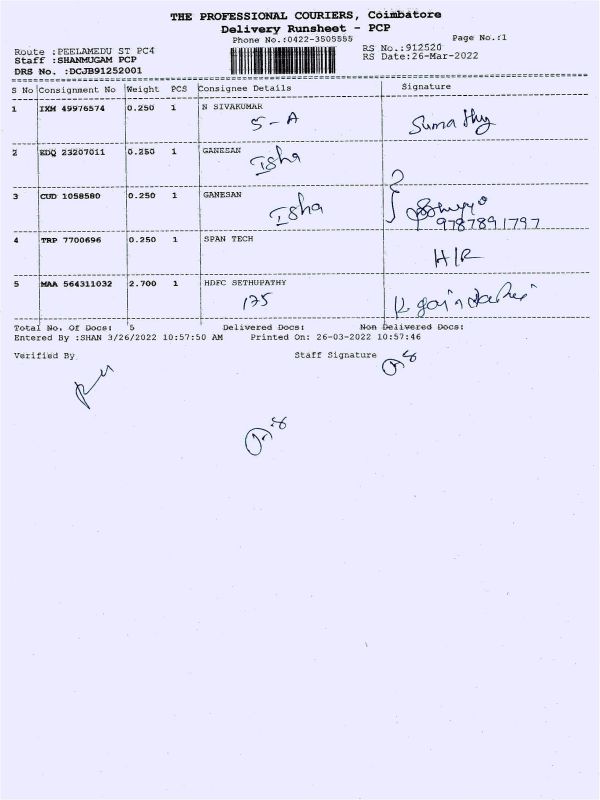 THE PROFESSIONAL COURIERS, Coimbatore
Delivery Runsheet - PCP
Phone No.:0422-3505555
Page No.:1
Route :PEELAMEDU ST PC4
Staff :SHANMUGAM PCP
DRS No. :DCJB91252001
RS No.:912520
RS Date:26-Mar-2022
S No Consignment No Weight PCS Consignee Details Signature
1 IXM 49976574 0.250 1 N SIVAKUMAR
5-A Sumathy
2 EDQ 23207011 0.250 1 GANESAN
Isha
3 CUD 1058580 0.250 1 GANESAN
Isha
9787891797
4 TRP 7700696 0.250 1 SPAN TECH
H/R
5 MAA 564311032 2.700 1 HDFC SETHUPATHY
175
Total No. Of Docs: 5 Delivered Docs: Non Delivered Docs:
Entered By :SHAN 3/26/2022 10:57:50 AM Printed On: 26-03-2022 10:57:46
Verified By Staff Signature